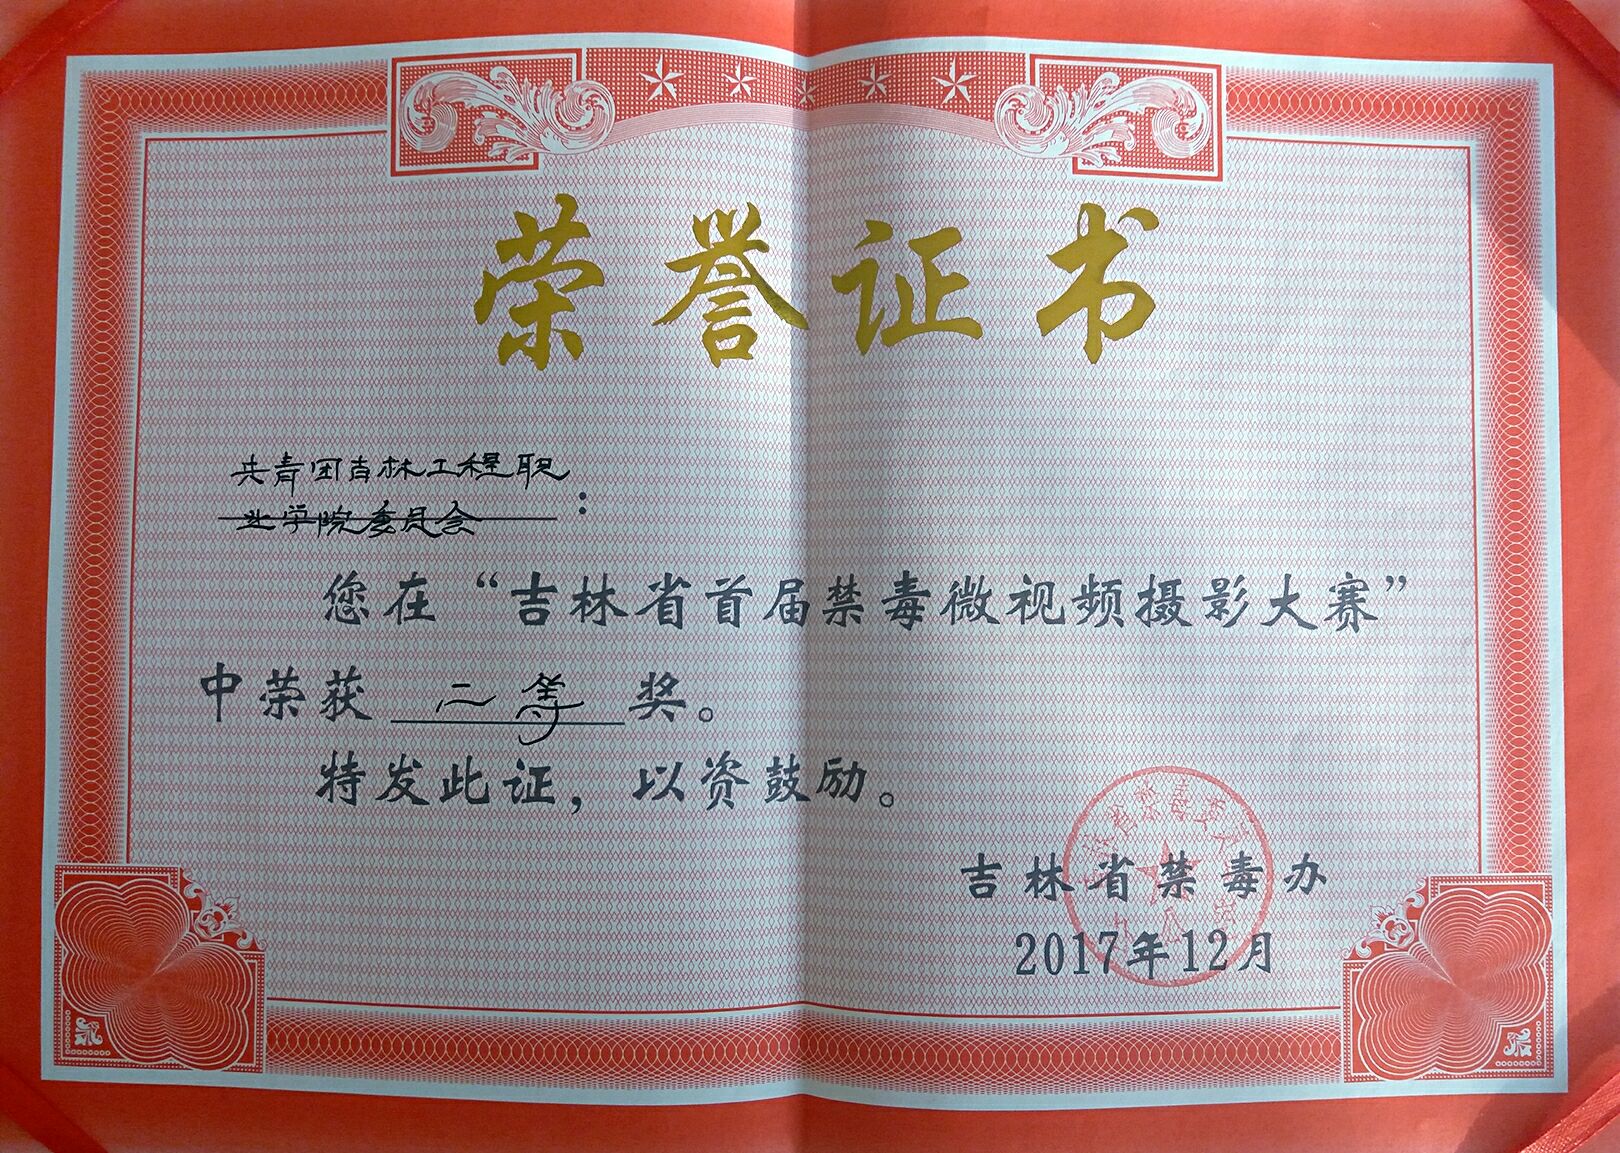 荣誉证书
共青团吉林工程职
业学院委员会：
您在“吉林省首届禁毒微视频摄影大赛”
中荣获 二等 奖。
特发此证，以资鼓励。
吉林省禁毒办
2017年12月